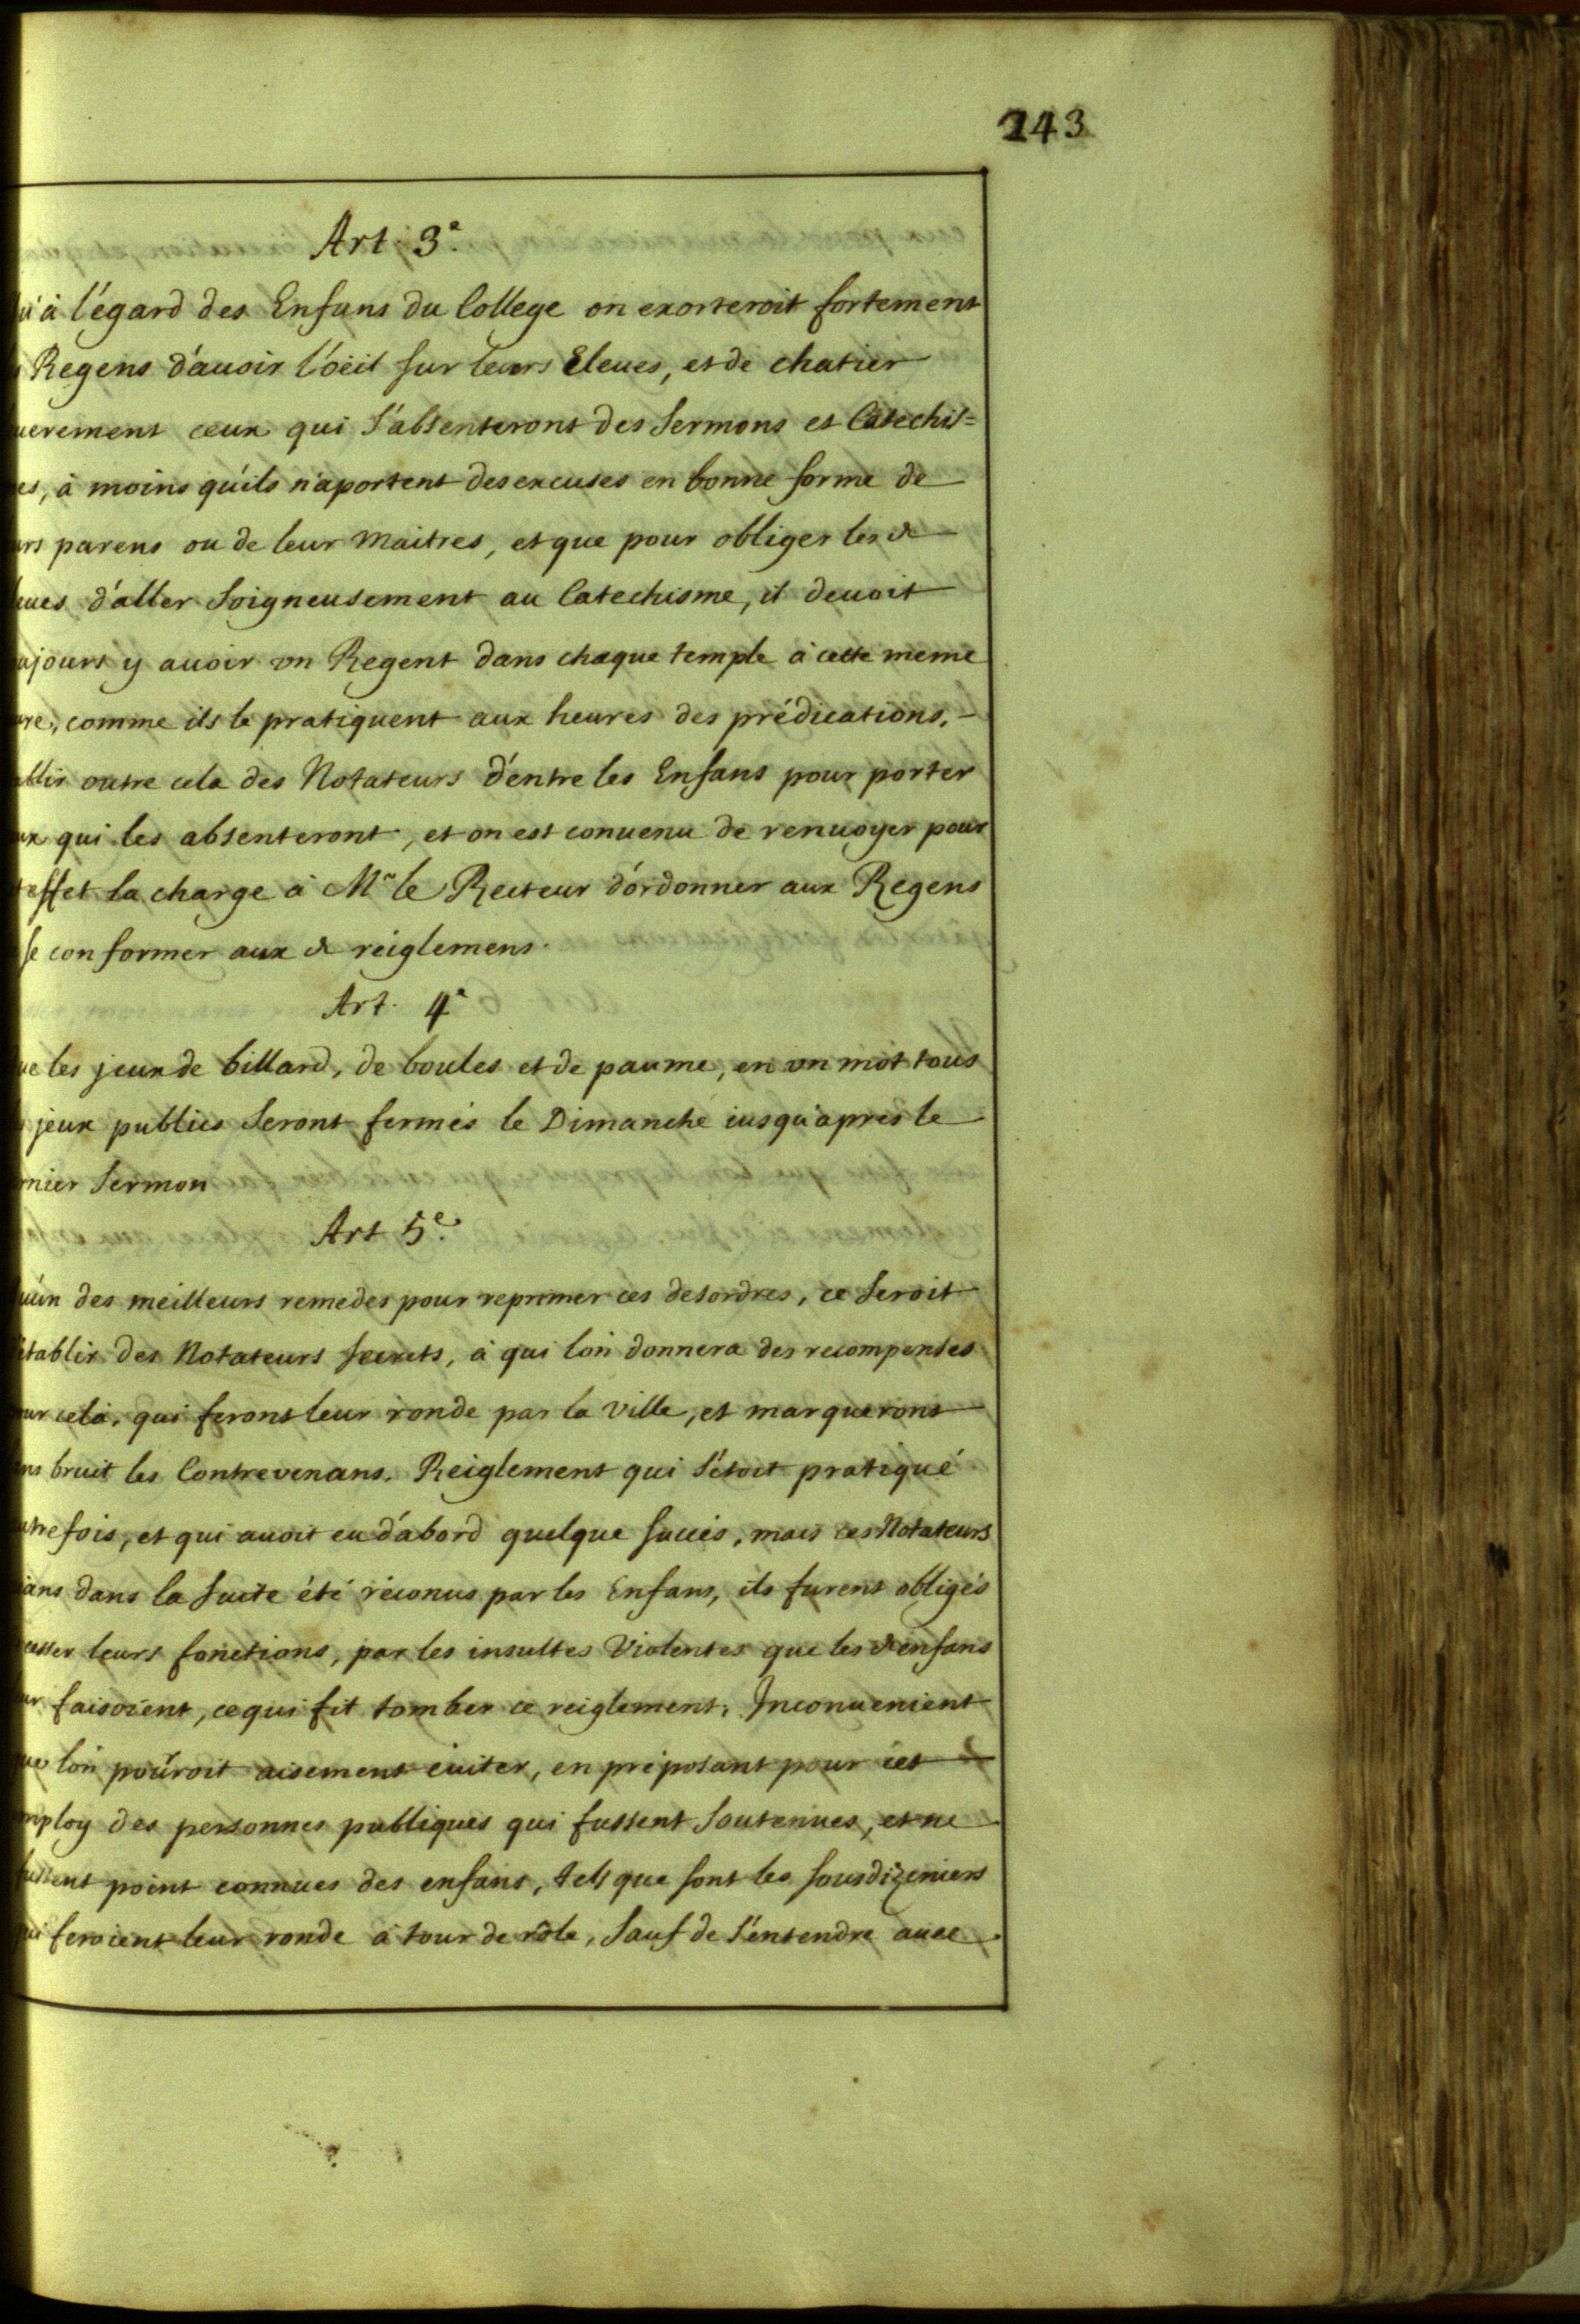 243
Art. 3e.
u'à l'égard des Enfans du College on exorteroit fortement
Regens d'auoir l'oëil sur leurs Eleues, et de chatier
uerement ceux qui s'absenteront des Sermons et Catechis=
es, à moins qu'ils n'aportent des excuses en bonne forme de
urs parens ou de leur Maitres, et que pour obliger les d
eues d'aller Soigneusement au Catechisme, il deuoit
ujours y auoir vn Regent dans chaque temple à cette meme
ure, comme ils le pratiquent aux heures des prédications,
ablir outre cela des Notateurs d'entre les Enfans pour porter
ux qui les absenteront, et on est conuenu de renuoyer pour
t effet la charge à Mr le Recteur d'ordonner aux Regens
se conformer aux d reiglemens.
Art. 4e
ue les jeux de billard, de boules et de paume, en vn mot tous
jeux publics Seront fermés le Dimanche iusqu'apres le
rnier Sermon
Art 5e.
u'un des meilleurs remedes pour reprimer ces desordres, ce Seroit
établir des Notateurs secrets, à qui l'on donnera des recompenses
ur cela, qui feront leur ronde par la Ville, et marqueront
ns bruit les Contrevenans. Reiglement qui s'étoit pratiqué
utrefois, et qui auoit eu d'abord quelque succès, mais ces Notateurs
ians dans la suite été réconus par les Enfans, ils furent obligés
cesser leurs fonctions, par les insultes Violentes que les d enfans
ur faisoient, ce qui fit tomber ce reiglement, Inconuenient
ue l'on pouroit aisement éuiter, en préposant pour cet
mploy des personnes publiques qui fussent Soutenues, et ne
fussent point connues des enfans, tels que sont les sousdizeniers
ui feroient leur ronde à tour de rôle, Sauf de S'entendre auec